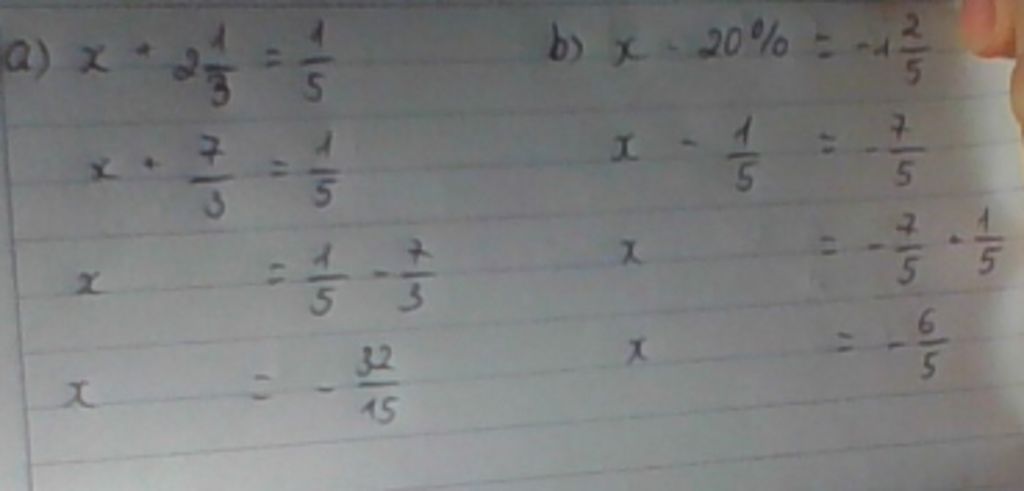 a) x + 2 1/3 = 1/5
x + 7/3 = 1/5
x = 1/5 - 7/3
x = - 32/15
b) x - 20% = -1 2/5
x - 1/5 = - 7/5
x = - 7/5 + 1/5
x = - 6/5